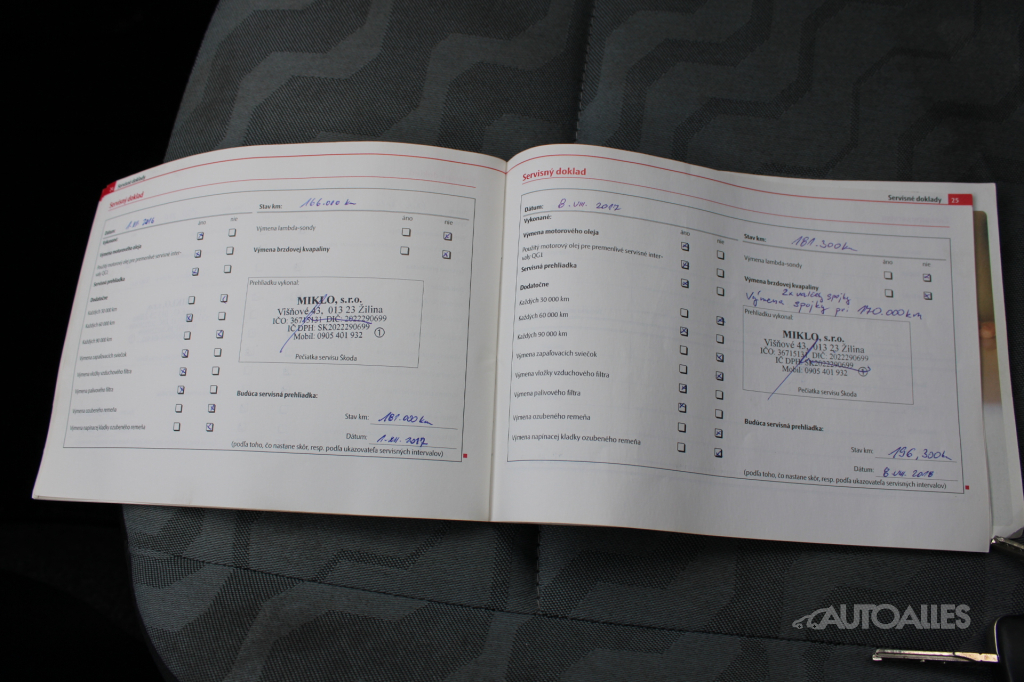 Servisné doklady
Servisný doklad
Dátum
Stav km: 166.000 km
Vykonané:
áno nie
Výmena motorového oleja
Použitý motorový olej pre premenlivé servisné inter-
valy QG.I
Servisná prehliadka
Dodatočne
Každých 30 000 km
Každých 60 000 km
Každých 90 000 km
Výmena zapaľovacích sviečok
Výmena vložky vzduchového filtra
Výmena palivového filtra
Výmena ozubeného remeňa
Výmena napínacej kladky ozubeného remeňa
áno nie
Výmena lambda-sondy
Výmena brzdovej kvapaliny
Prehliadku vykonal:
MIKLO, s.r.o.
Višňové 43, 013 23 Žilina
IČO: 36715131 DIČ: 2022290699
IČ DPH: SK2022290699
Mobil: 0905 401 932 1
Pečiatka servisu Škoda
Budúca servisná prehliadka:
Stav km: 181.000 km
Dátum: 1.VII. 2017
(podľa toho, čo nastane skôr, resp. podľa ukazovateľa servisných intervalov)
Servisné doklady 25
Servisný doklad
Dátum: 8. VII. 2017
Stav km: 181.300 km
Vykonané:
áno nie
Výmena motorového oleja
Použitý motorový olej pre premenlivé servisné inter-
valy QG.I
Servisná prehliadka
Dodatočne
Každých 30 000 km
Každých 60 000 km
Každých 90 000 km
Výmena zapaľovacích sviečok
Výmena vložky vzduchového filtra
Výmena palivového filtra
Výmena ozubeného remeňa
Výmena napínacej kladky ozubeného remeňa
áno nie
Výmena lambda-sondy
Výmena brzdovej kvapaliny
spojky
Výmena spojky pri 170.000 km
Prehliadku vykonal:
MIKLO, s.r.o.
Višňové 43, 013 23 Žilina
IČO: 36715131, DIČ: 2022290699
IČ DPH: SK2022290699
Mobil: 0905 401 932 1
Pečiatka servisu Škoda
Budúca servisná prehliadka:
Stav km: 196,300 km
Dátum: 8 VII. 2018
(podľa toho, čo nastane skôr, resp. podľa ukazovateľa servisných intervalov)
AUTOALLES